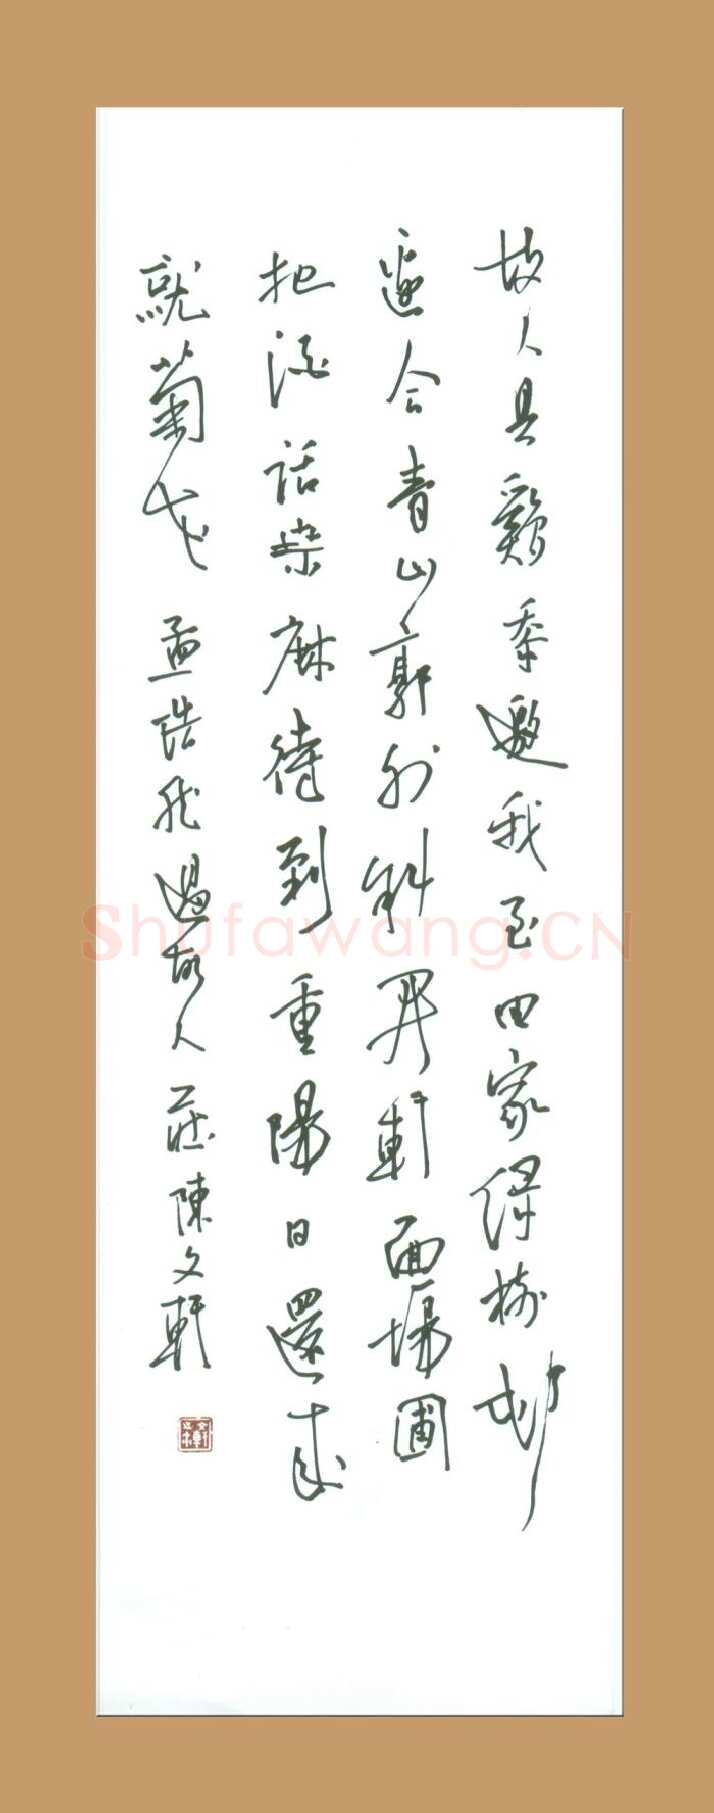 故人具鷄黍邀我至田家綠樹村
邊合青山郭外斜開軒面場圃
把酒話桑麻待到重陽日還來
就菊花 孟浩然過故人莊陳文軒
Shufawang.CN